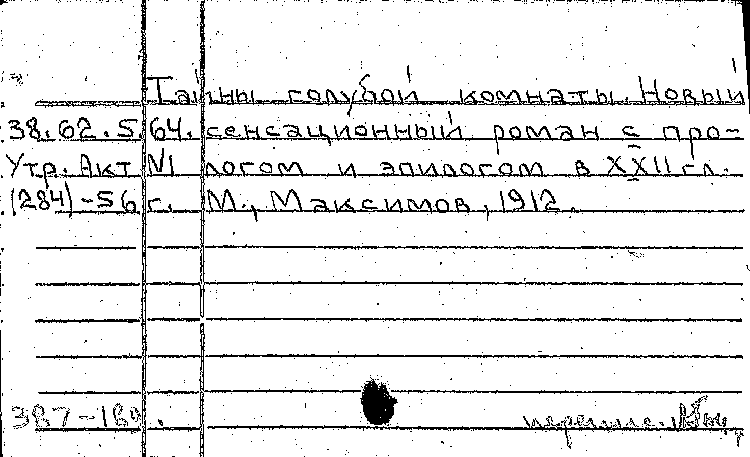 Тайны голубой комнаты. Новый
38.62.5.64. сенсационный роман с про-
Утр. Акт VI логом и эпилогом в XXII гл.
(284)-56 г. М., Максимов, 1912.
387-